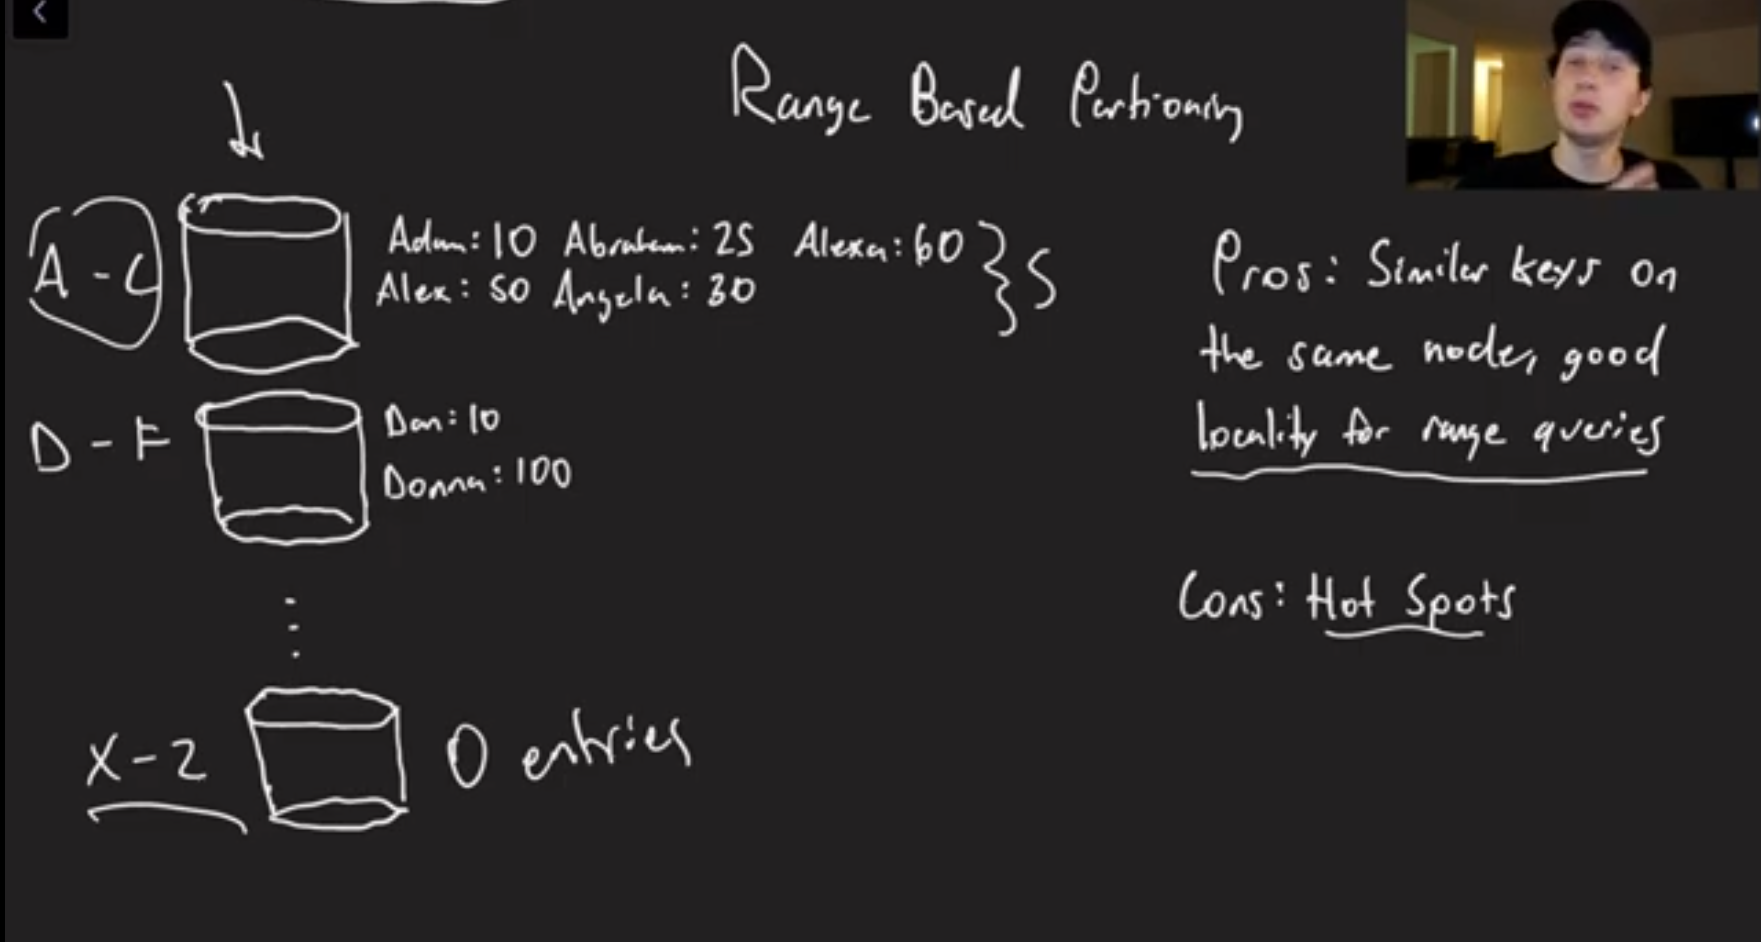 Range Based Partioning
A - C
Adam: 10 Abraham: 25 Alexa: 60
Alex: 50 Angela: 30
} 5
D - F
Dan: 10
Donna: 100
X - Z
0 entries
Pros: Similar keys on
the same node, good
locality for range queries
Cons: Hot Spots